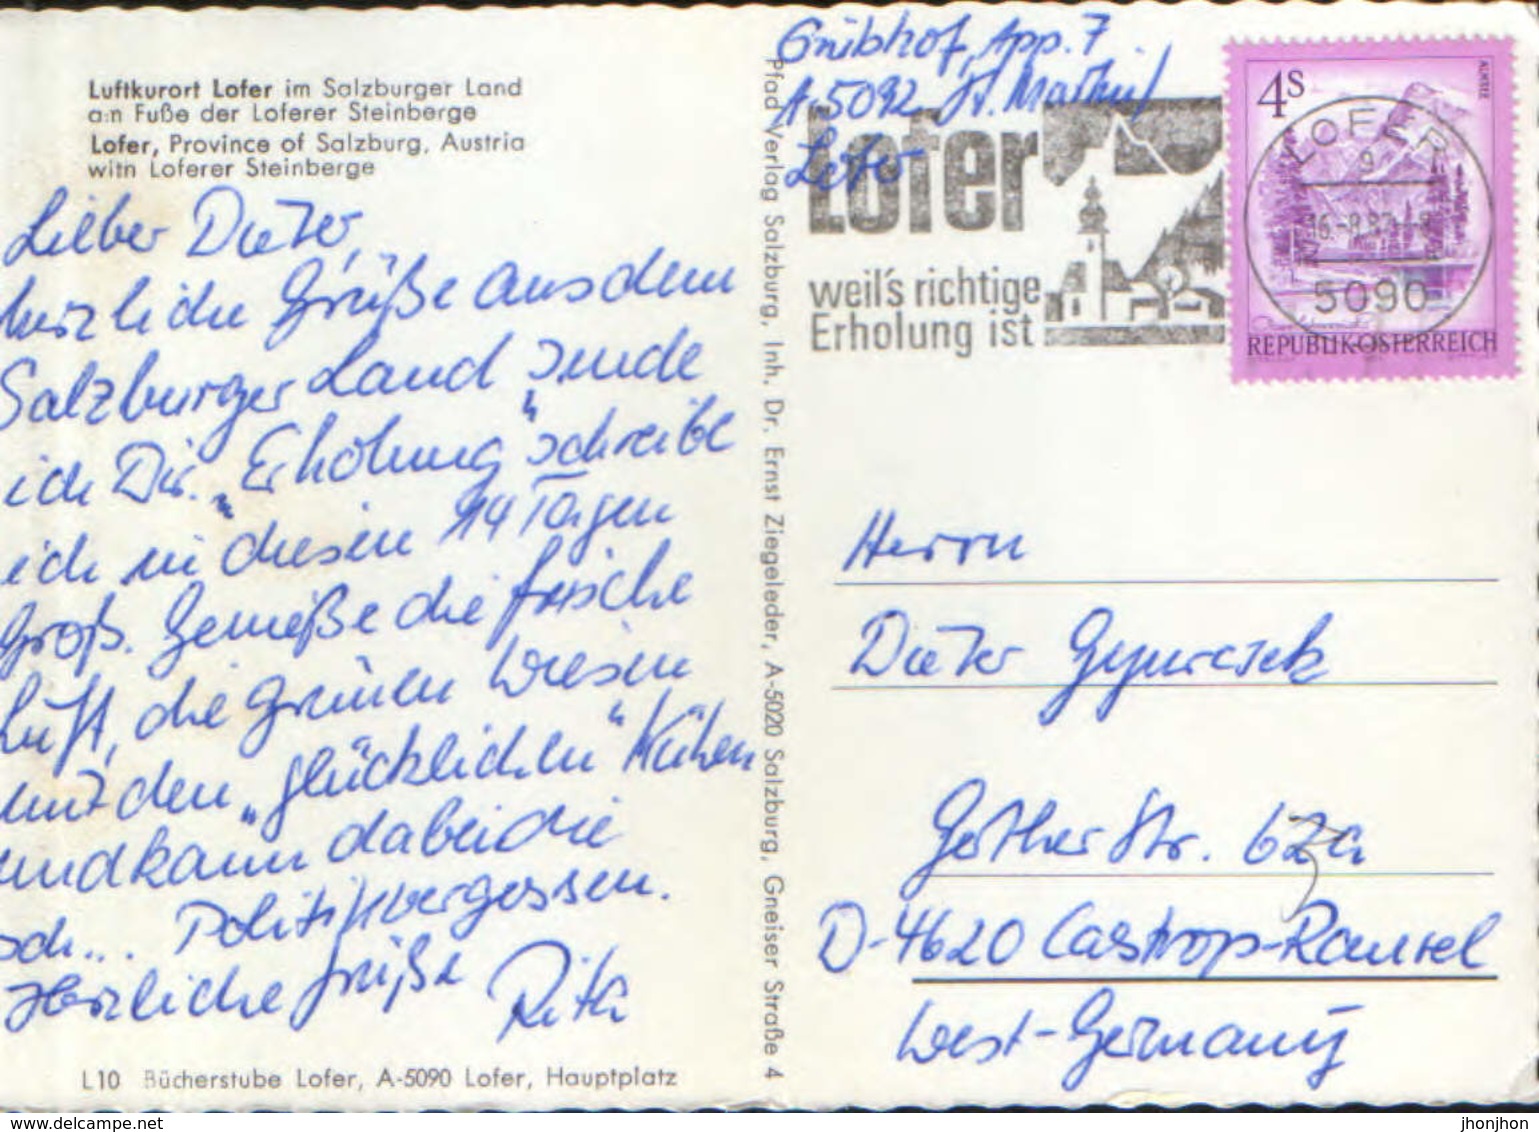 Luftkurort Lofer im Salzburger Land
am Fuße der Loferer Steinberge
Lofer, Province of Salzburg, Austria
with Loferer Steinberge
Lieber Dieter,
herzliche Grüße aus dem
Salzburger Land sende
ich Dir. „Erholung" schreibe
ich in diesen 14 Tagen
groß. Genieße die frische
Luft, die grünen Wiesen
mit den „glücklichen" Kühen
und kann dabei die
sch... Politik vergessen.
Herzliche Grüße Rita
L10 Bücherstube Lofer, A-5090 Lofer, Hauptplatz
Pfad Verlag Salzburg, Inh. Dr. Ernst Ziegeleder, A-5020 Salzburg, Gneiser Straße 4
Grubhof, App. 7
A-5092 St. Martin/
Lofer
Lofer
weil's richtige
Erholung ist
4S
ALMSEE
LOFER
9
5090
REPUBLIK ÖSTERREICH
Herrn
Dieter Gyurcsek
Gother Str. 62a
D-4620 Castrop-Rauxel
West-Germany
www.delcampe.net
jhonjhon